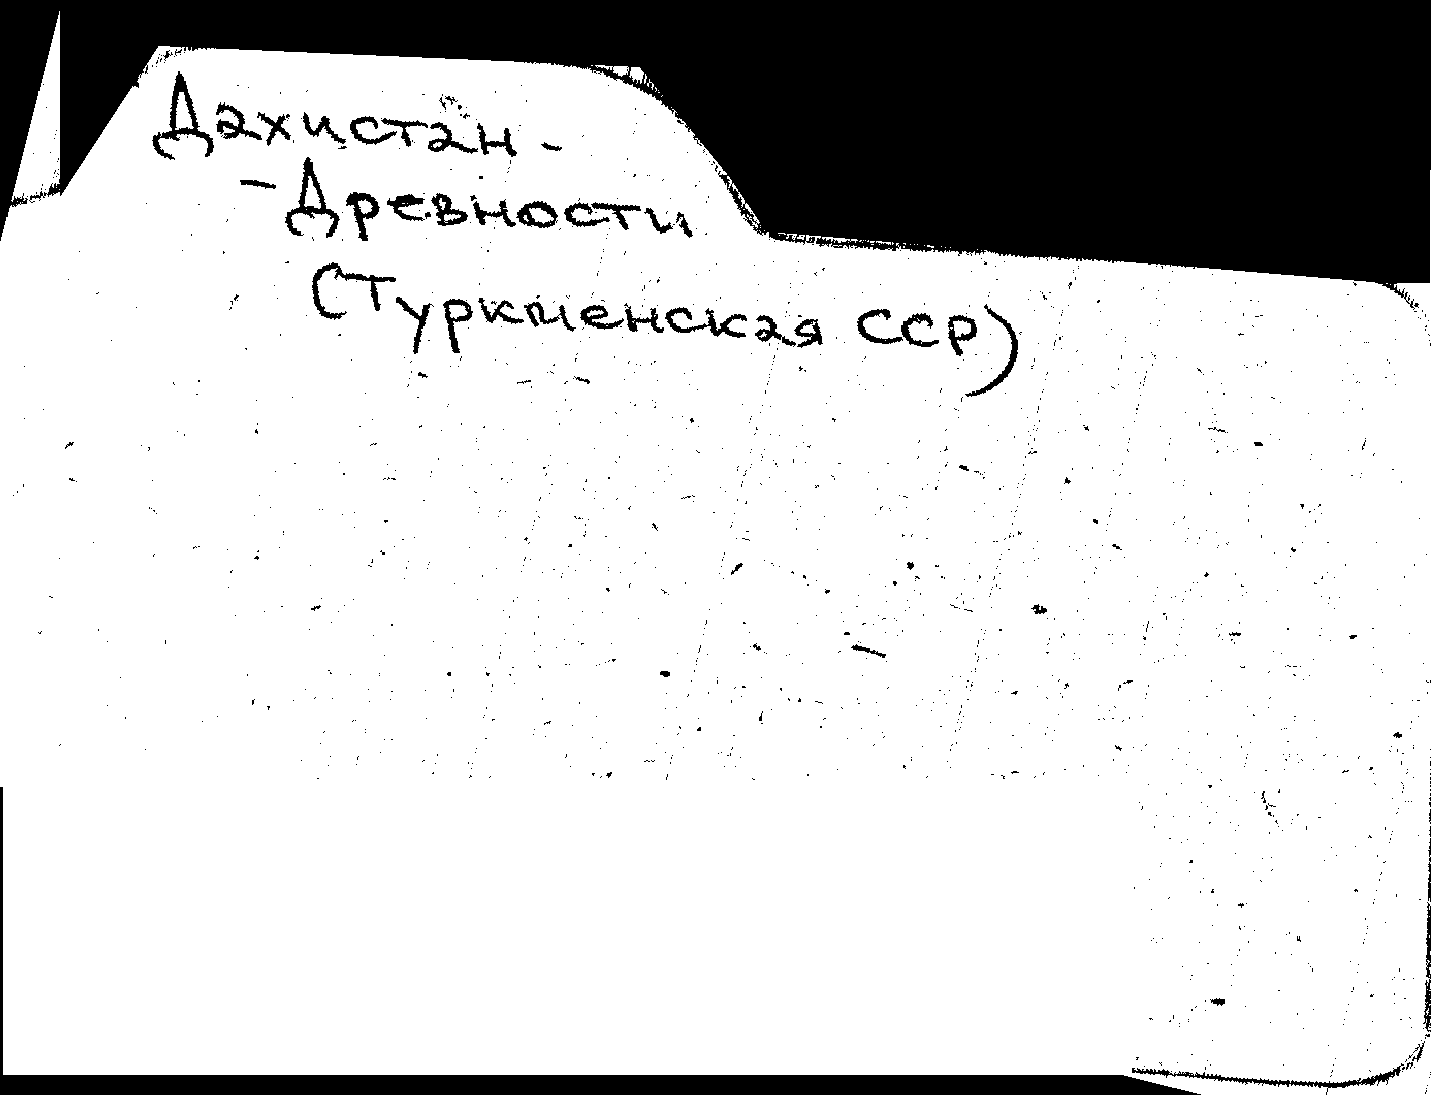 Дахистан -
- Древности
(Туркменская ССР)